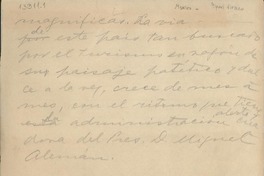 magníficas. La vía
de
por este país tan buscado
por el turismo en razón de
su paisaje patético y dul
ce a la vez, crece de mes a
mes, con el ritmo que
administración
dora del Pres. D. Miguel
Alemán.